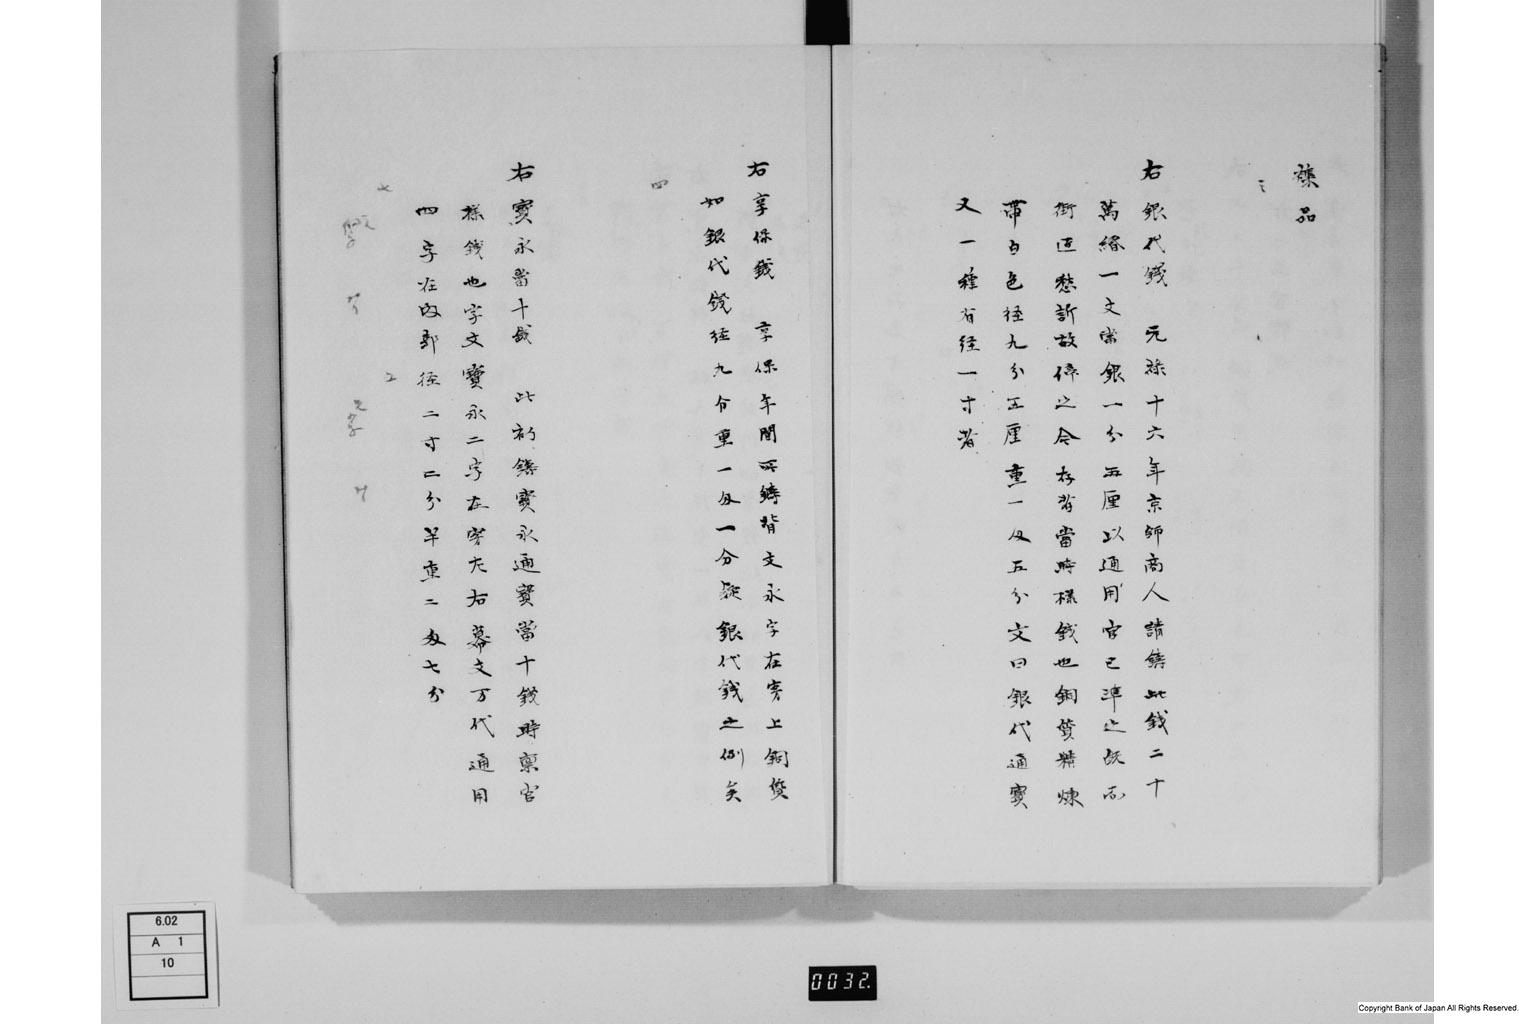 様品
右銀代銭　元禄十六年京師商人請鋳此銭二十
萬緡一文當銀一分五厘以通用官已準之既而
街巫愁訴故停之今存者當時様銭也銅質精煉
帯白色径九分五厘重一匁五分文曰銀代通寳
又一種有径一寸者
右享保銭　享保年間所鋳背文永字在穿上銅質
四
如銀代銭径九分重一匁一分疑銀代銭之例矣
右寳永當十銭　此初鋳寳永通寳當十銭時稟官
様銭也字文寳永二字在穿左右幕文万代通用
四字在内郭径二寸二分半重二匁七分
七
6.02
A 1
10
0032.
Copyright Bank of Japan All Rights Reserved.